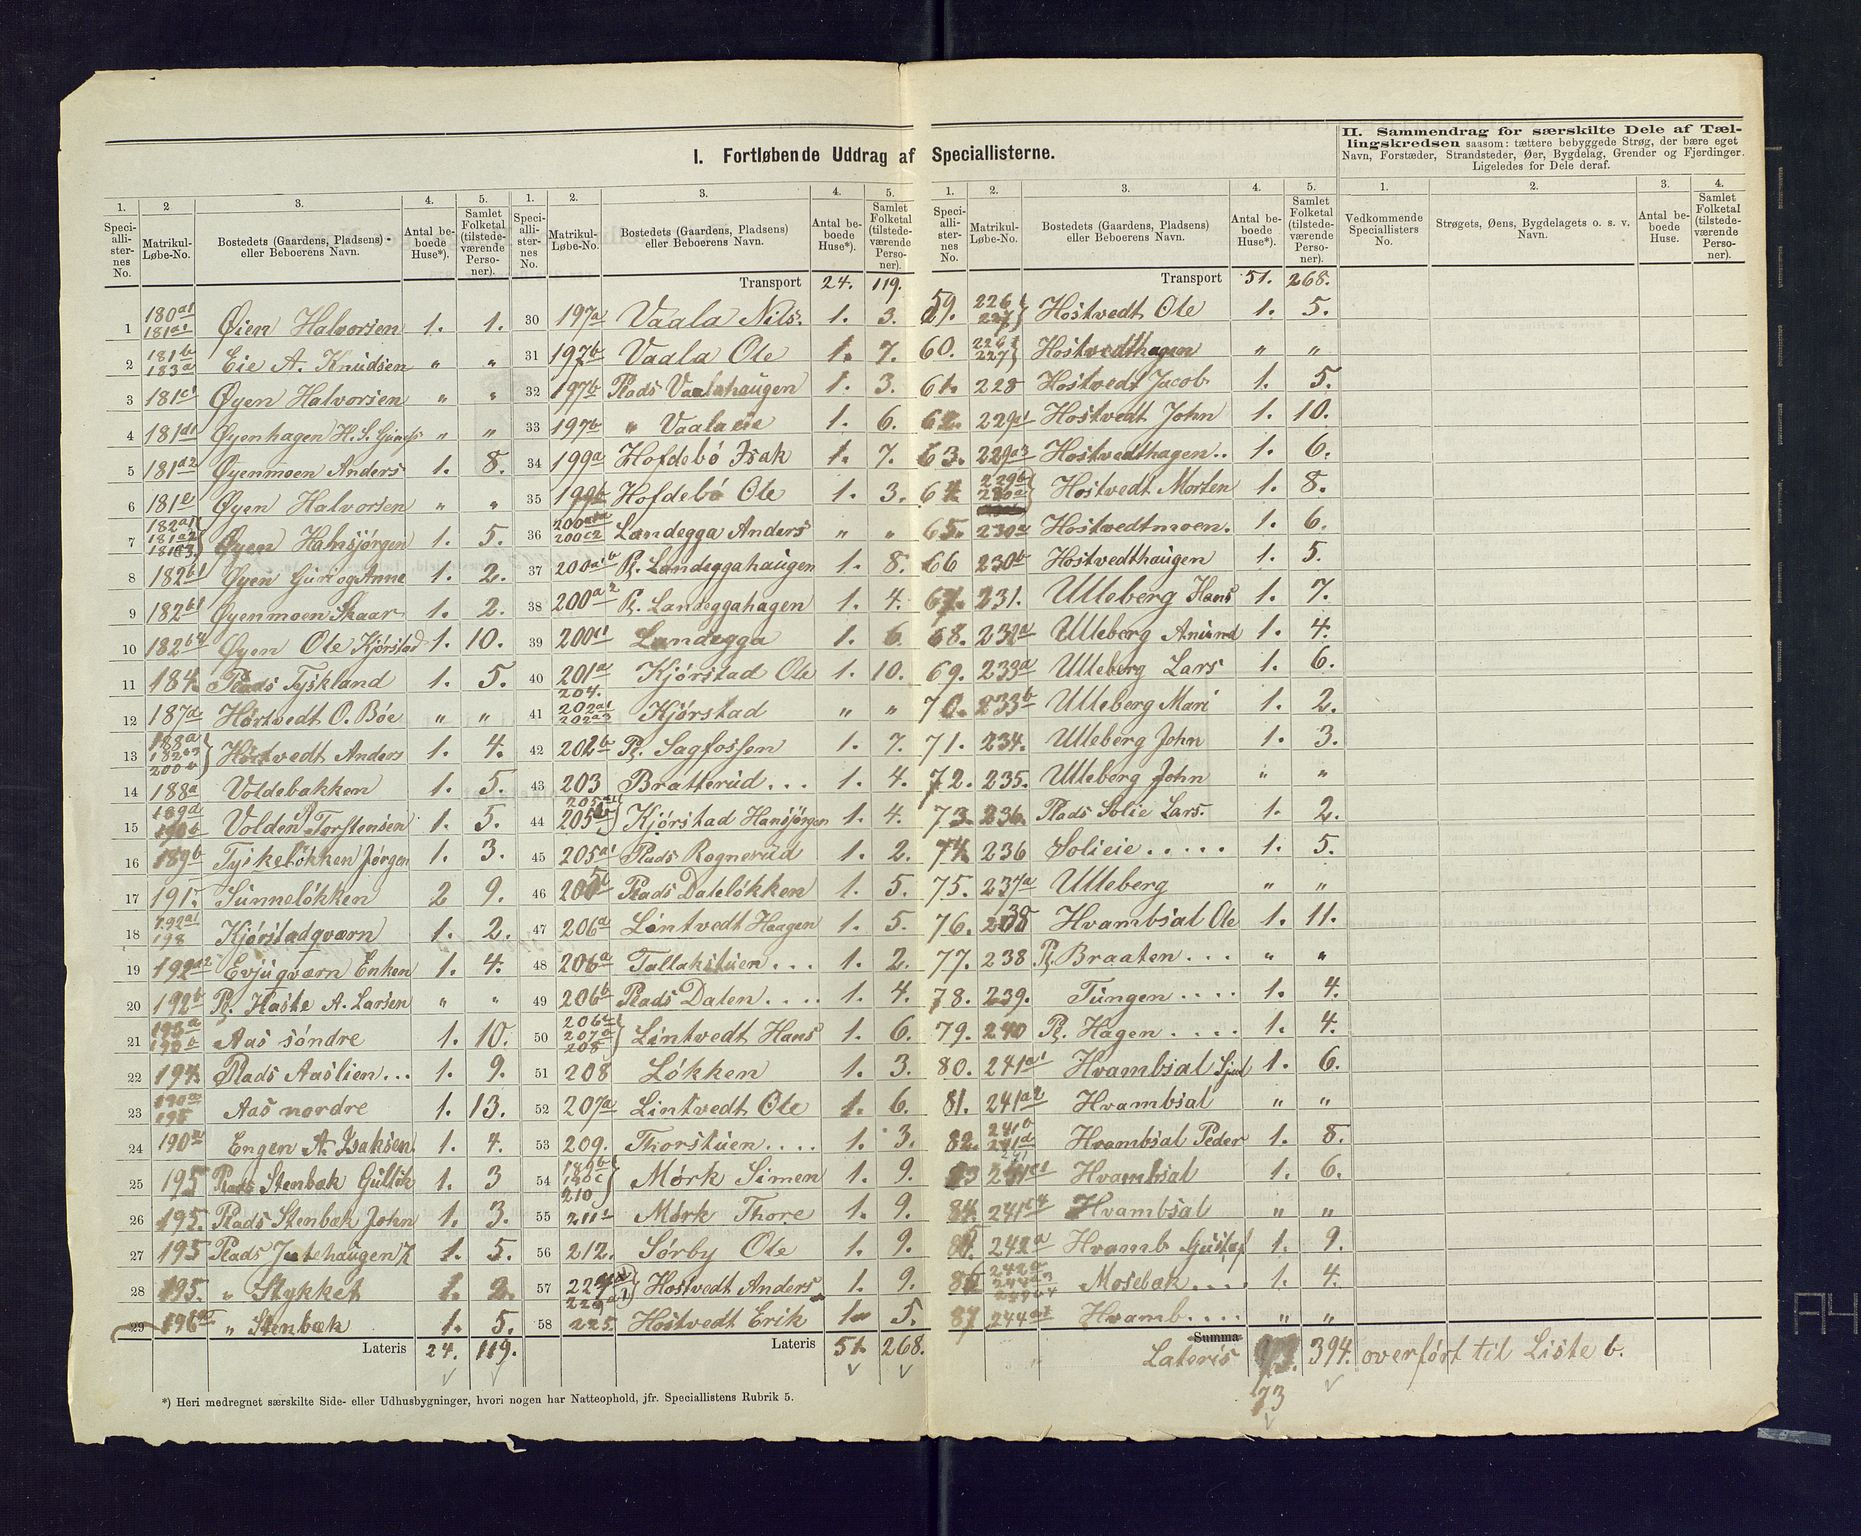 I. Fortløbende Uddrag af Speciallisterne.
II. Sammendrag for særskilte Dele af Tællingskredsen saasom: tættere bebyggede Strøg, der bære eget
Navn, Forstæder, Strandsteder, Øer, Bygdelag, Grender og Fjerdinger.
Ligeledes for Dele deraf.
1. 2 3. 4. 5.
Speciallisternes No. Matrikul-Løbe-No. Bostedets (Gaardens, Pladsens) eller Beboerens Navn. Antal beboede Huse*). Samlet Folketal (tilstedeværende Personer).
1 180a1 181a1 Øien Halvorsen 1. 1.
2 181b 183a Eie A. Knudsen " "
3 181c1 Øyen Halvorsen " "
4 181d1 Øyenhagen H. S. " "
5 181a2 Øyenmoen Anders 1. 8.
6 181e Øyen Halvorsen " "
7 182a1 181a2 Øyen Hansjørgen 1. 5.
8 182b1 Øyen Guri og Anne 1. 2.
9 182b1 Øyenmoen Skaar 1. 2.
10 182b4 Øyen Ole Kjørstad 1. 10.
11 184. Plads Tyskland 1. 5.
12 187d Hostvedt O. Bøe " "
13 188a 200 Hostvedt Anders 1. 4.
14 188a Voldebakken 1. 5.
15 189d Volden Torstensen 1. 5.
16 189b Tyskeløkken Jørgen 1. 3.
17 191. Sunneløkken 2 9.
18 192a1 198 Kjørstadqværn 1. 2.
19 192a2 Evjuqværn Enken 1. 4.
20 192b Pl. Haste A. Larsen " "
21 193a Aas søndre 1. 10.
22 194. Plads Aaslien... 1. 9.
23 Aas nordre 1. 13.
24 190 Engen A. Isaksen 1. 4.
25 195 Plads Stenbæk Gullik 1. 3
26 195. Plads Stenbæk John 1. 3.
27 195 Plads Julehaugen 1. 5.
28 195. " Stykket 1. 2.
29 196 " Stenbæk 1. 5.
Lateris 24. 119.
1. 2. 3. 4. 5.
Speciallisternes No. Matrikul-Løbe-No. Bostedets (Gaardens, Pladsens) eller Beboerens Navn. Antal beboede Huse*). Samlet Folketal (tilstedeværende Personer).
Transport 24. 119.
30 197a Vaala Nils. 1. 3.
31 197b Vaala Ole 1. 7.
32 197b Plads Vaalahaugen 1. 3.
33 197b " Vaalaeie 1. 6.
34 199a Hofdebø Isak 1. 7.
35 199b Hofdebø Ole 1. 3.
36 200c2 Landegga Anders " "
37 200a1b Pl. Landeggahaugen 1. 8.
38 200a2 Pl. Landeggahagen 1. 4.
39 200c1 Landegga 1. 6
40 201a Kjørstad Ole 1. 10.
41 204. 202a1 202a3 Kjørstad " "
42 202b Pl. Sagfossen 1. 7.
43 203 Bratterud... 1. 4.
44 205 Kjørstad Hansjørgen 1. 4.
45 205a1 Plads Rognerud 1. 2.
46 205 Plads Dateløkken 1. 5.
47 206a Lintvedt Haagen 1. 5.
48 206a Tallakstuen... 1. 2.
49 206b Plads Dalen.... 1. 4.
50 206 207a 208 Lintvedt Hans 1. 6.
51 208 Løkken 1. 3.
52 207a Lintvedt Ole 1. 6.
53 209. Thorstuen.... 1. 3.
54 189b 190c 210 Mørk Simen 1. 9.
55 211 Mørk Thore 1. 9.
56 212. Sørby Ole 1. 9.
57 229a1 Hostvedt Anders 1. 9.
58 225. Hostvedt Erik 1. 5.
Lateris 51. 268.
*) Heri medregnet særskilte Side- eller Udhusbygninger, hvori nogen har Natteophold, jfr. Speciallistens Rubrik 5.
1. 2. 3. 4. 5.
Speciallisternes No. Matrikul-Løbe-No. Bostedets (Gaardens, Pladsens) eller Beboerens Navn. Antal beboede Huse*). Samlet Folketal (tilstedeværende Personer).
Transport 51. 268.
59. 226 227 Hostvedt Ole 1. 5.
60. 226 227 Hostvedthagen " "
61. 228 Hostvedt Jacob 1. 5.
62. 229 Hostvedt John 1. 10.
63. 229a3 Hostvedthagen.. 1. 6.
64. 229b 230a Hostvedt Morten 1. 8.
65. 230a Hostvedtmoen. 1. 6.
66 230b Hostvedthaugen 1. 5.
67. 231. Ulleberg Hans 1. 7.
68. 232a Ulleberg Amund 1. 4.
69. 233a Ulleberg Lars 1. 6.
70. 233b Ulleberg Mari 1. 2.
71. 234. Ulleberg John 1. 3.
72. 235. Ulleberg John " "
73. 236. Plads Solie Lars. 1. 2.
74. 236 Solieie..... 1. 5.
75. 237a Ulleberg " "
76. 238 Hvambsal Ole 1. 11.
77. 238 Pl. Braaten... " "
78. 239. Tungen.... 1. 4.
79. 240 Pl. Hagen.... 1. 4.
80. 241a1 Hvambsal 1. 6.
81. 241a2 Hvambsal " "
82. 241b 241d Hvambsal Peder 1. 8.
83 241c1 Hvambsal 1. 6.
84. 241c4 Hvambsal " "
85. 242a Hvamb Gustaf 1. 9.
86 242a 244a3 Mosebæk.... 1. 4.
87 244a1 Hvamb.... " "
Summa
Lateris 73. 394. overført til Liste b.
73
1. 2. 3. 4.
Vedkommende Speciallisters No. Strøgets, Øens, Bygdelagets o. s. v. Navn. Antal beboede Huse. Samlet Folketal (tilstedeværende Personer).